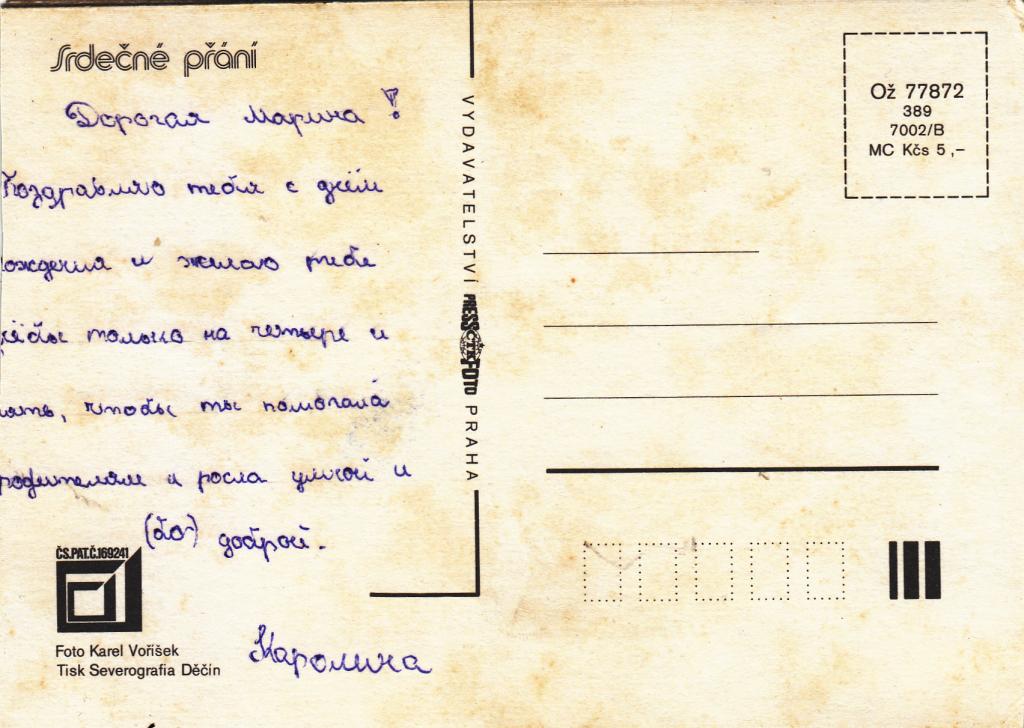 Srdečné přání
Дорогая Марина!
Поздравляю тебя с днём
ождения и желаю тебе
чёбы только на четыре и
пять, чтобы ты помогала
родителям и росла умной и
(бо) доброй.
Каролина
ČS.PAT.Č.169241
Foto Karel Voříšek
Tisk Severografia Děčín
VYDAVATELSTVÍ PRESSFOTO PRAHA
ČTK
Ož 77872
389
7002/B
MC Kčs 5,–